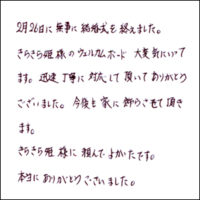 2月26日に無事に結婚式を終えました。
きらきら姫様のウェルカムボード 大変気にいって
ます。迅速丁寧に対応して頂いてありがとう
ございました。今後も家に飾らさせて頂き
ます。
きらきら姫様に頼んでよかったです。
本当にありがとうございました。